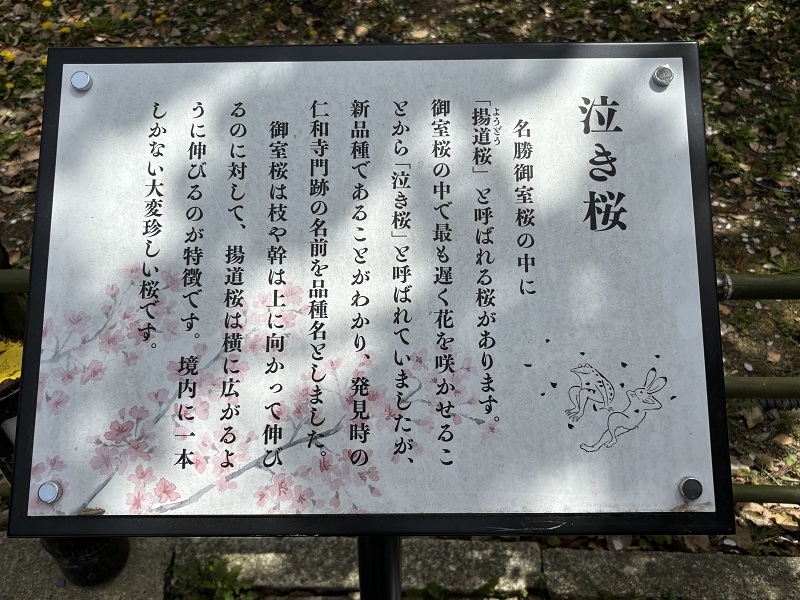 泣き桜
名勝御室桜の中に
「揚道桜」と呼ばれる桜があります。
ようどう
御室桜の中で最も遅く花を咲かせるこ
とから「泣き桜」と呼ばれていましたが、
新品種であることがわかり、発見時の
仁和寺門跡の名前を品種名としました。
御室桜は枝や幹は上に向かって伸び
るのに対して、揚道桜は横に広がるよ
うに伸びるのが特徴です。境内に一本
しかない大変珍しい桜です。